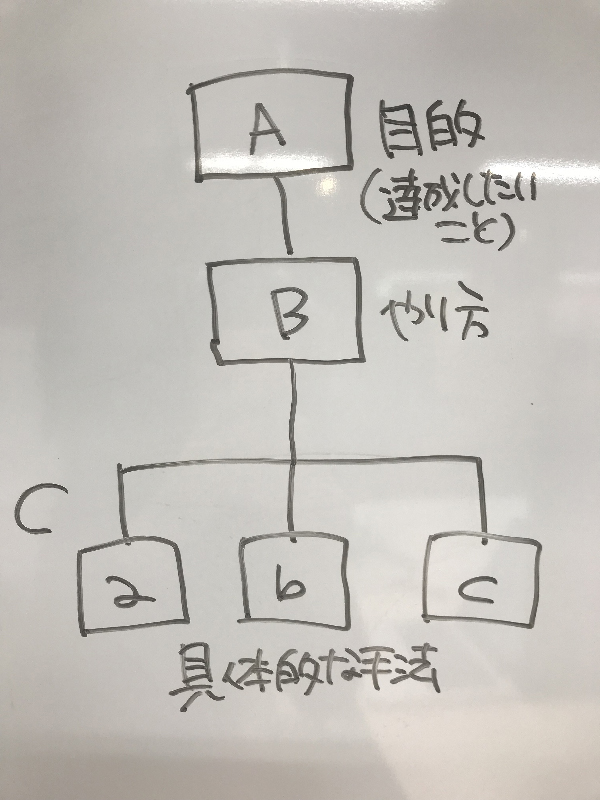 A
目的
(達成したい
こと)
B
やり方
C
a
b
c
具体的な手法